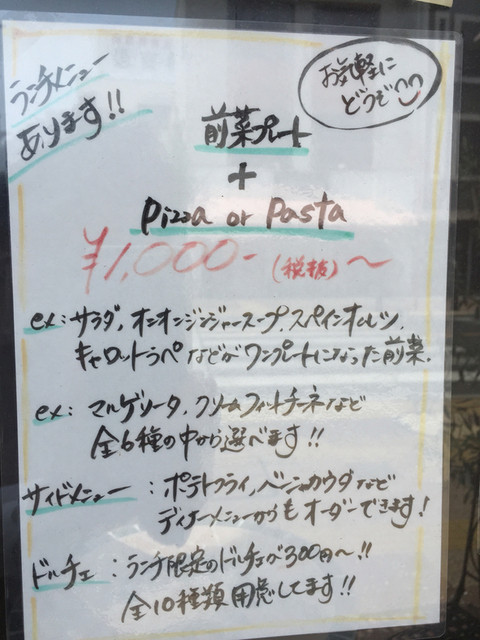 ランチメニュー
あります!!
お気軽に
どうぞ
前菜プレート
+
Pizza or Pasta
¥1,000-(税抜)〜
ex:サラダ,オニオンジンジャースープ,スペインオムレツ,
キャロットラペなどがワンプレートになった前菜.
ex:マルゲリータ,クリームフィットチーネなど
全6種の中から選べます!!
サイドメニュー:ポテトフライ,バーニャカウダなど
ディナーメニューからもオーダーできます!
ドルチェ:ランチ限定のドルチェが300円〜!!
全10種類用意してます!!